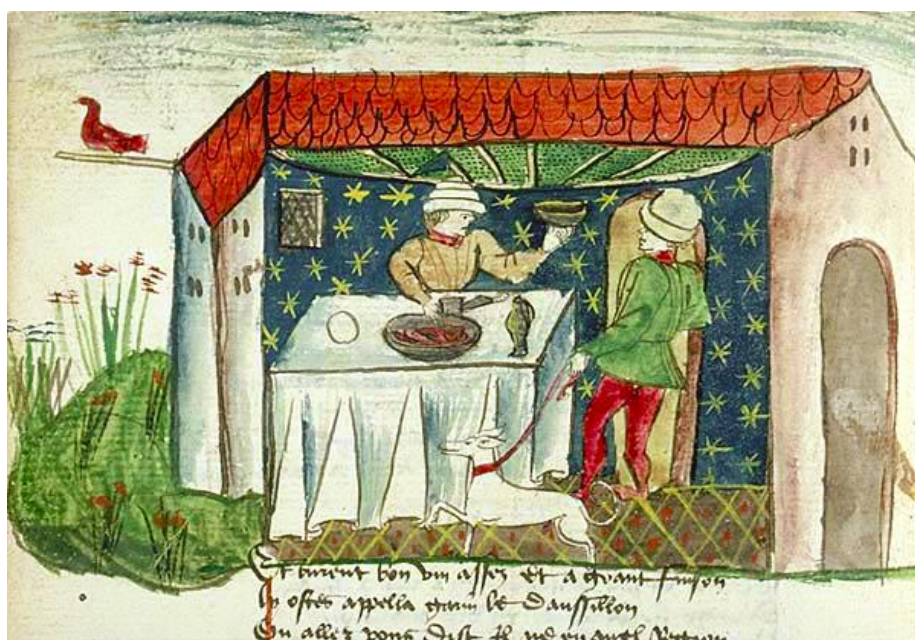 Et burent bon vin assez et a grant fuison
ly ostes appella garin le daussillon
Ou allez vous dist il